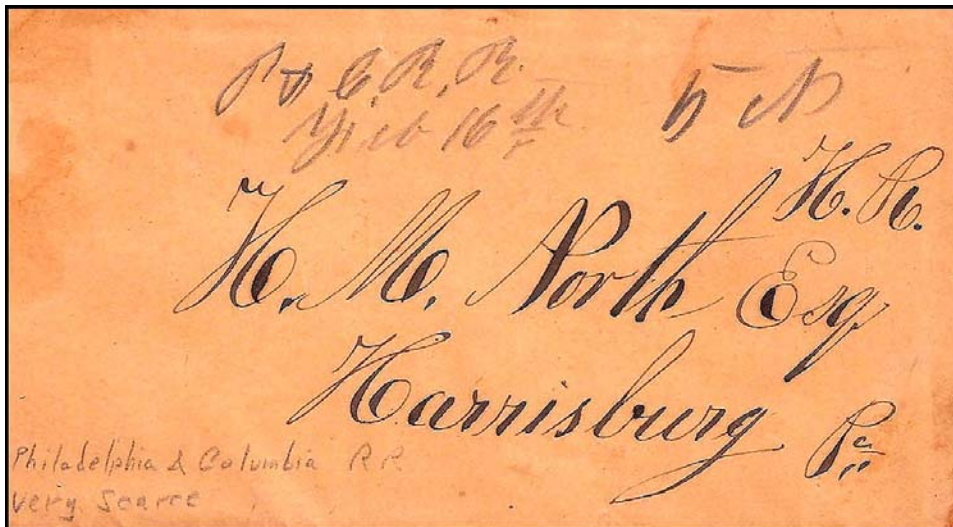 P & C. R. R.
Feb 16th 5
H. R.
H. M. North Esq
Harrisburg Pa
Philadelphia & Columbia RR
very Scarce